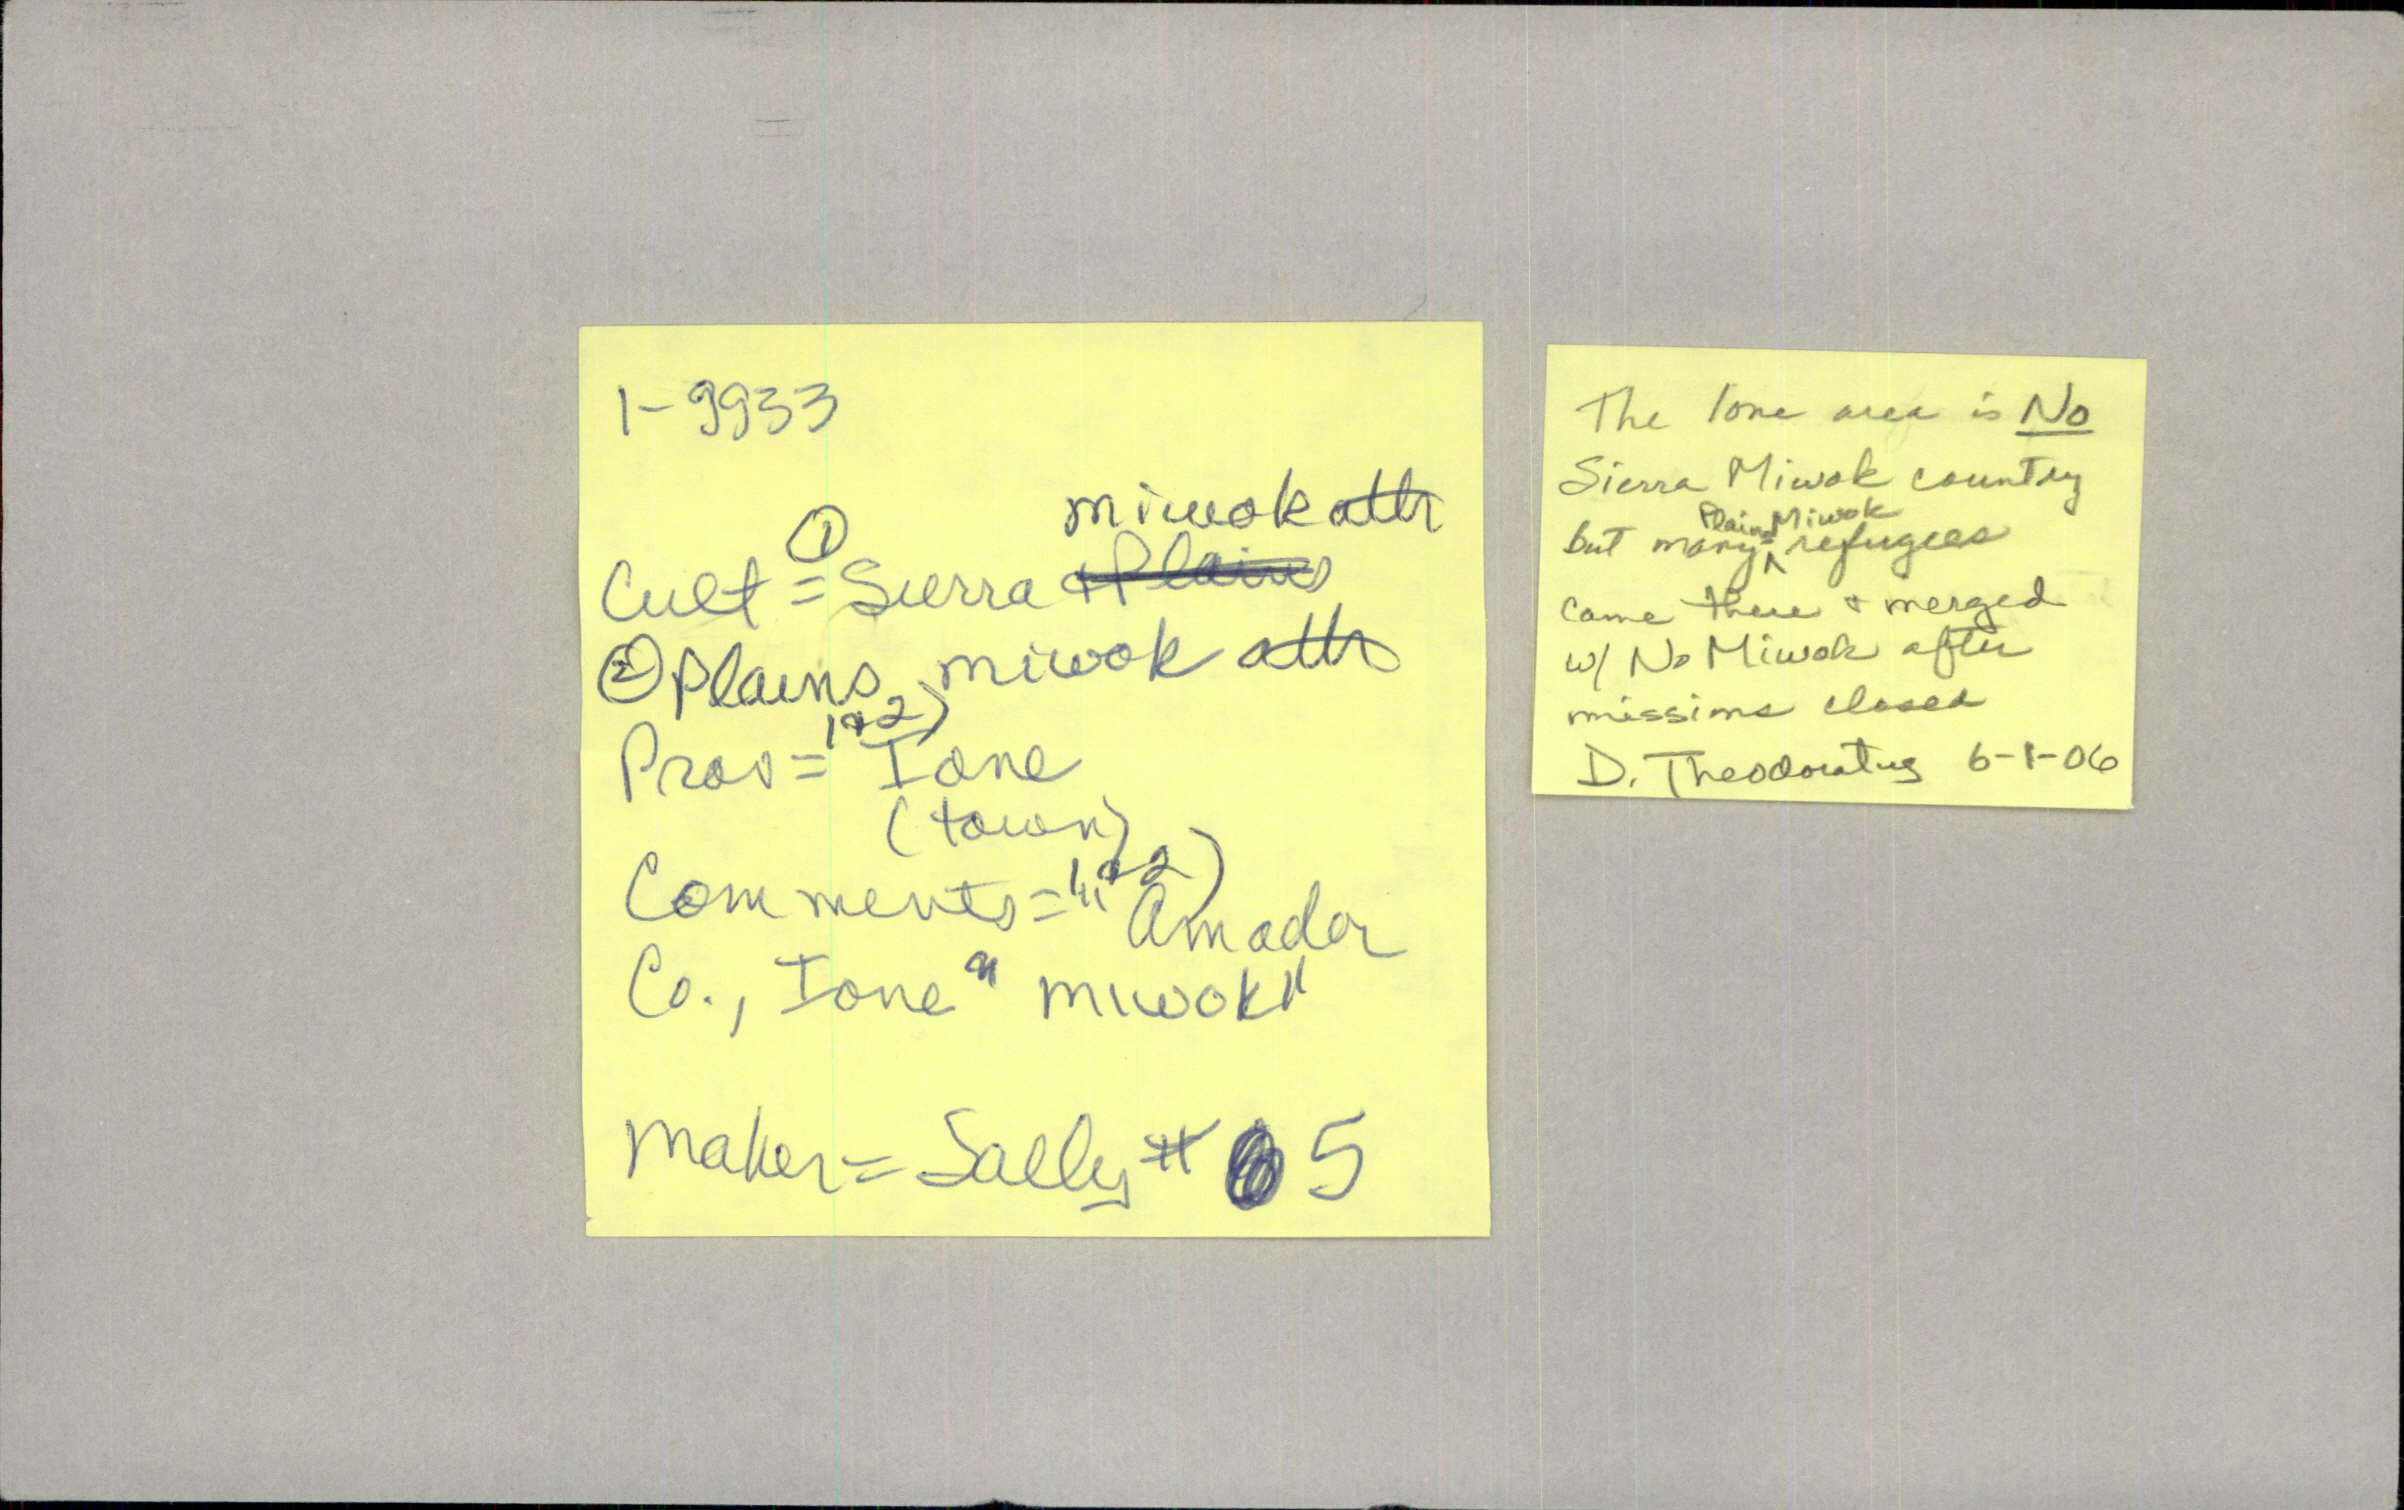 1-9933
miwok attr
Cult = ① Sierra & Plains
② Plains miwok attr
Prov = 1&2) Ione
(town)
Comments = 1&2) "Amador
Co., Ione" "miwok"
Maker = Sally # 5
The Ione area is No
Sierra Miwok country
but many Plains Miwok refugees
came there & merged
w/ No Miwok after
missions closed
D. Theodoratus 6-1-06